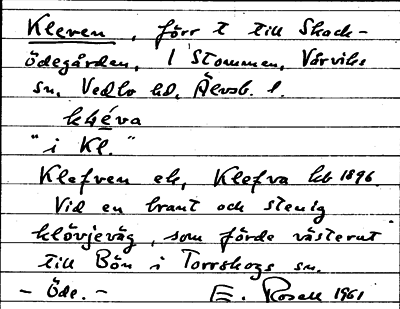 Kleven, förr t till Skack-
ödegården, 1 Stommen, Vårviks
sn, Vedbo hd, Älvsb. l.
kléva
"i Kl."
Klefven ek, Klefva kb 1896.
Vid en brant och stenig
klövjeväg, som förde västerut
till Bön i Torrskogs sn.
- Öde. - E. Rosell 1961